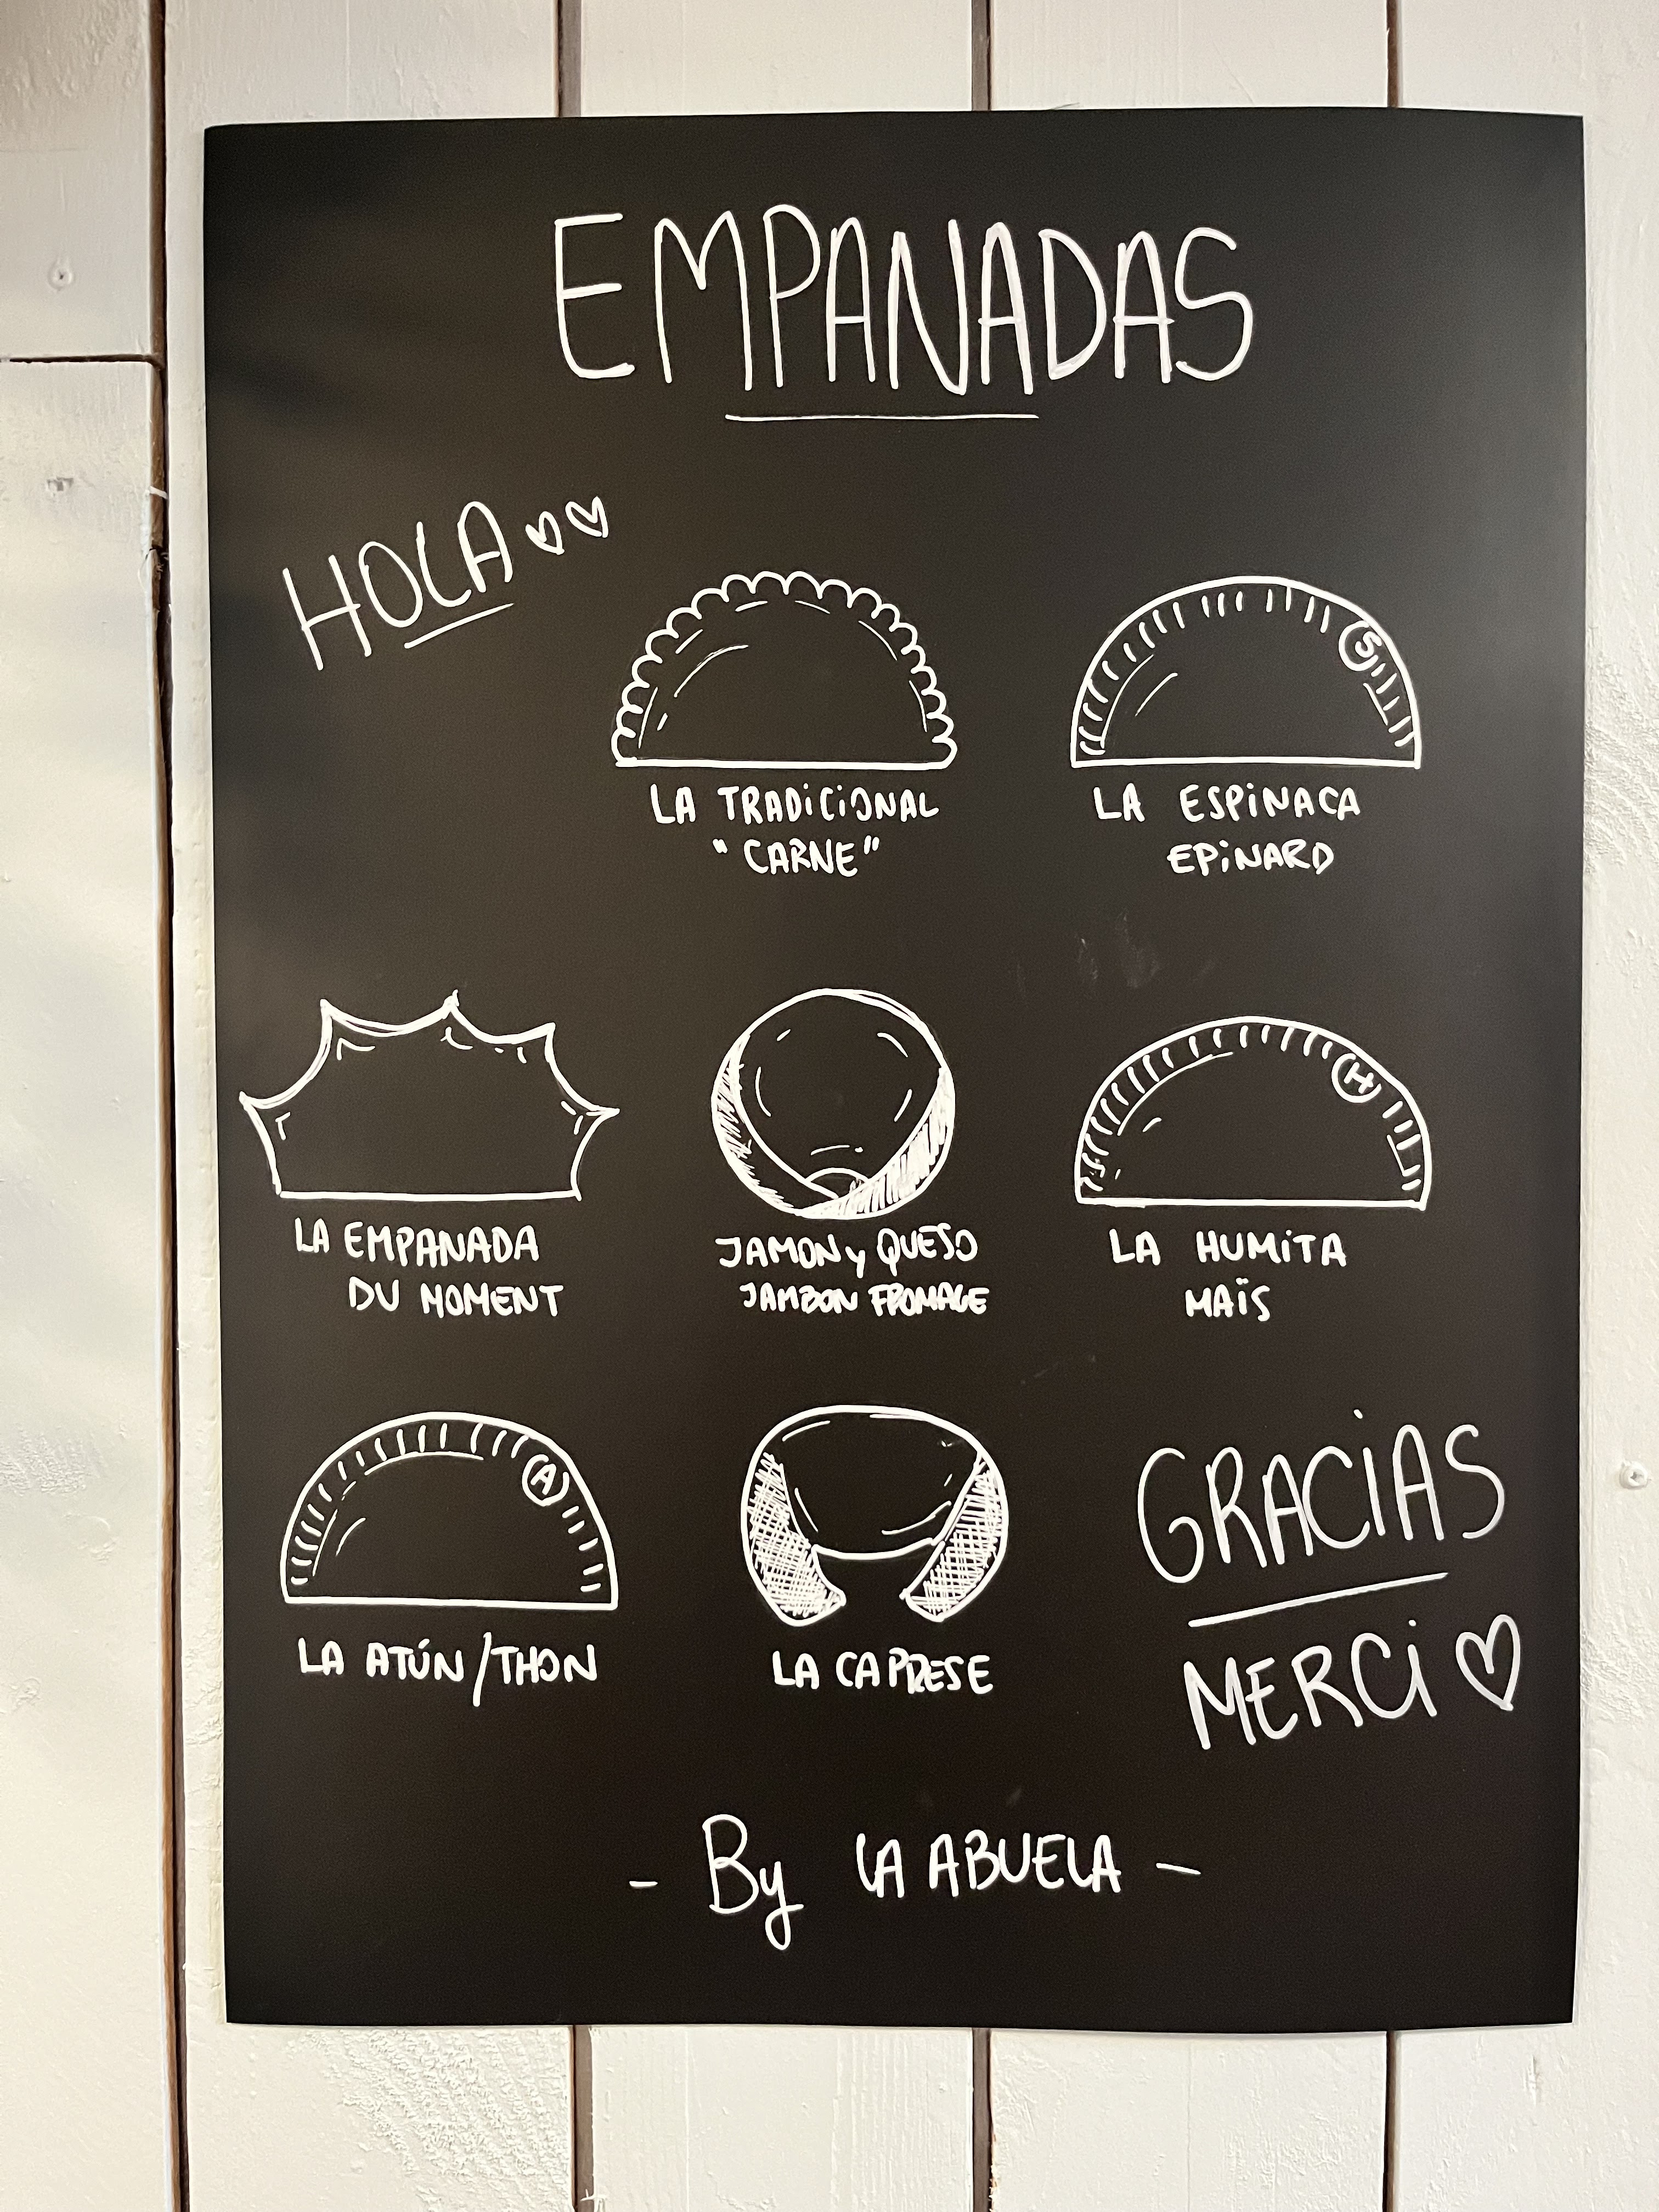 EMPANADAS
HOLA
S
LA TRADiCiONAL
"CARNE"
LA ESPiNACA
EPiNARD
H
LA EMPANADA
DU MOMENT
JAMON y QUESO
JAMBON FROMAGE
LA HUMiTA
MAÏS
A
LA ATÚN/THON
LA CAPRESE
GRACiAS
MERCi
- By LA ABUELA -